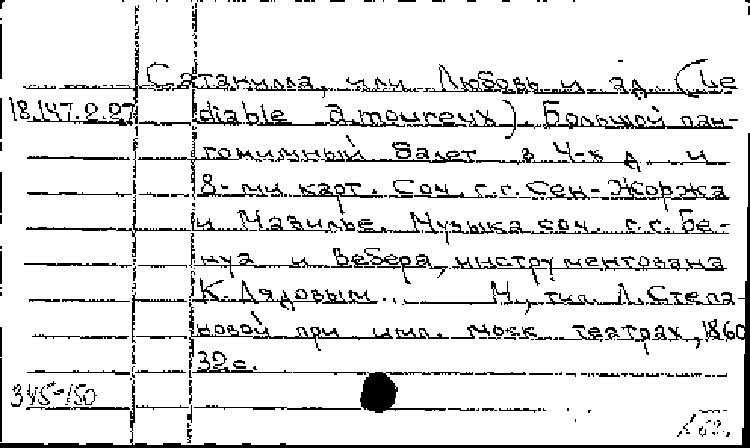 Сатанилла, или Любовь и ад (Le
18.147.2.27 diable amoureux). Большой пан-
томимный балет в 4-х д. и
8-ми карт. Соч. г.г. Сен-Жоржа
и Мазилье. Музыка соч. г.г. Бе-
нуа и Вебера, инструментована
К. Лядовым. М., тип. Л. Степа-
новой при имп. моск. театрах, 1860
32 с.
345-150